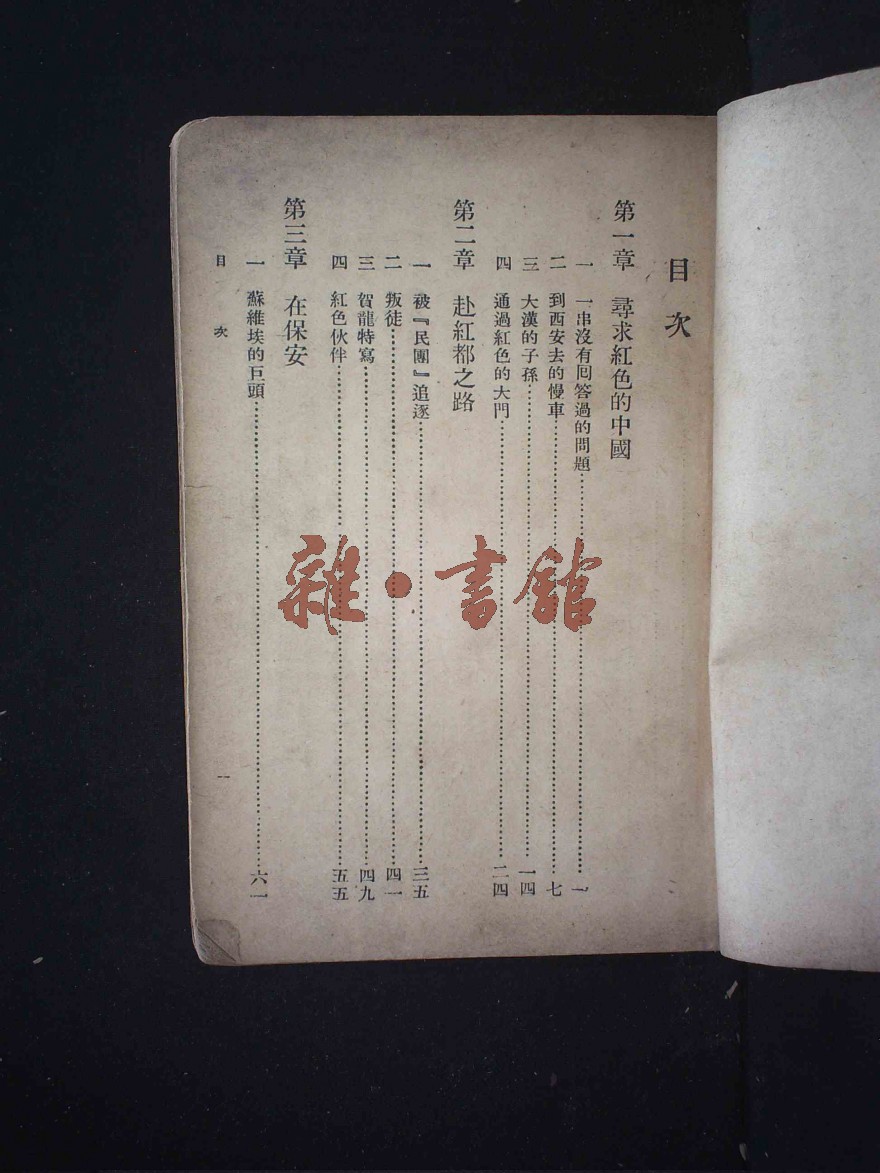 目次
第一章 尋求紅色的中國
一 一串沒有囘答過的問題……一
二 到西安去的慢車……七
三 大漢的子孫……一四
四 通過紅色的大門……二四
第二章 赴紅都之路
一 被『民團』追逐……三五
二 叛徒……四一
三 賀龍特寫……四九
四 紅色伙伴……五五
第三章 在保安
一 蘇維埃的巨頭……六一
目次 一
雜·書館